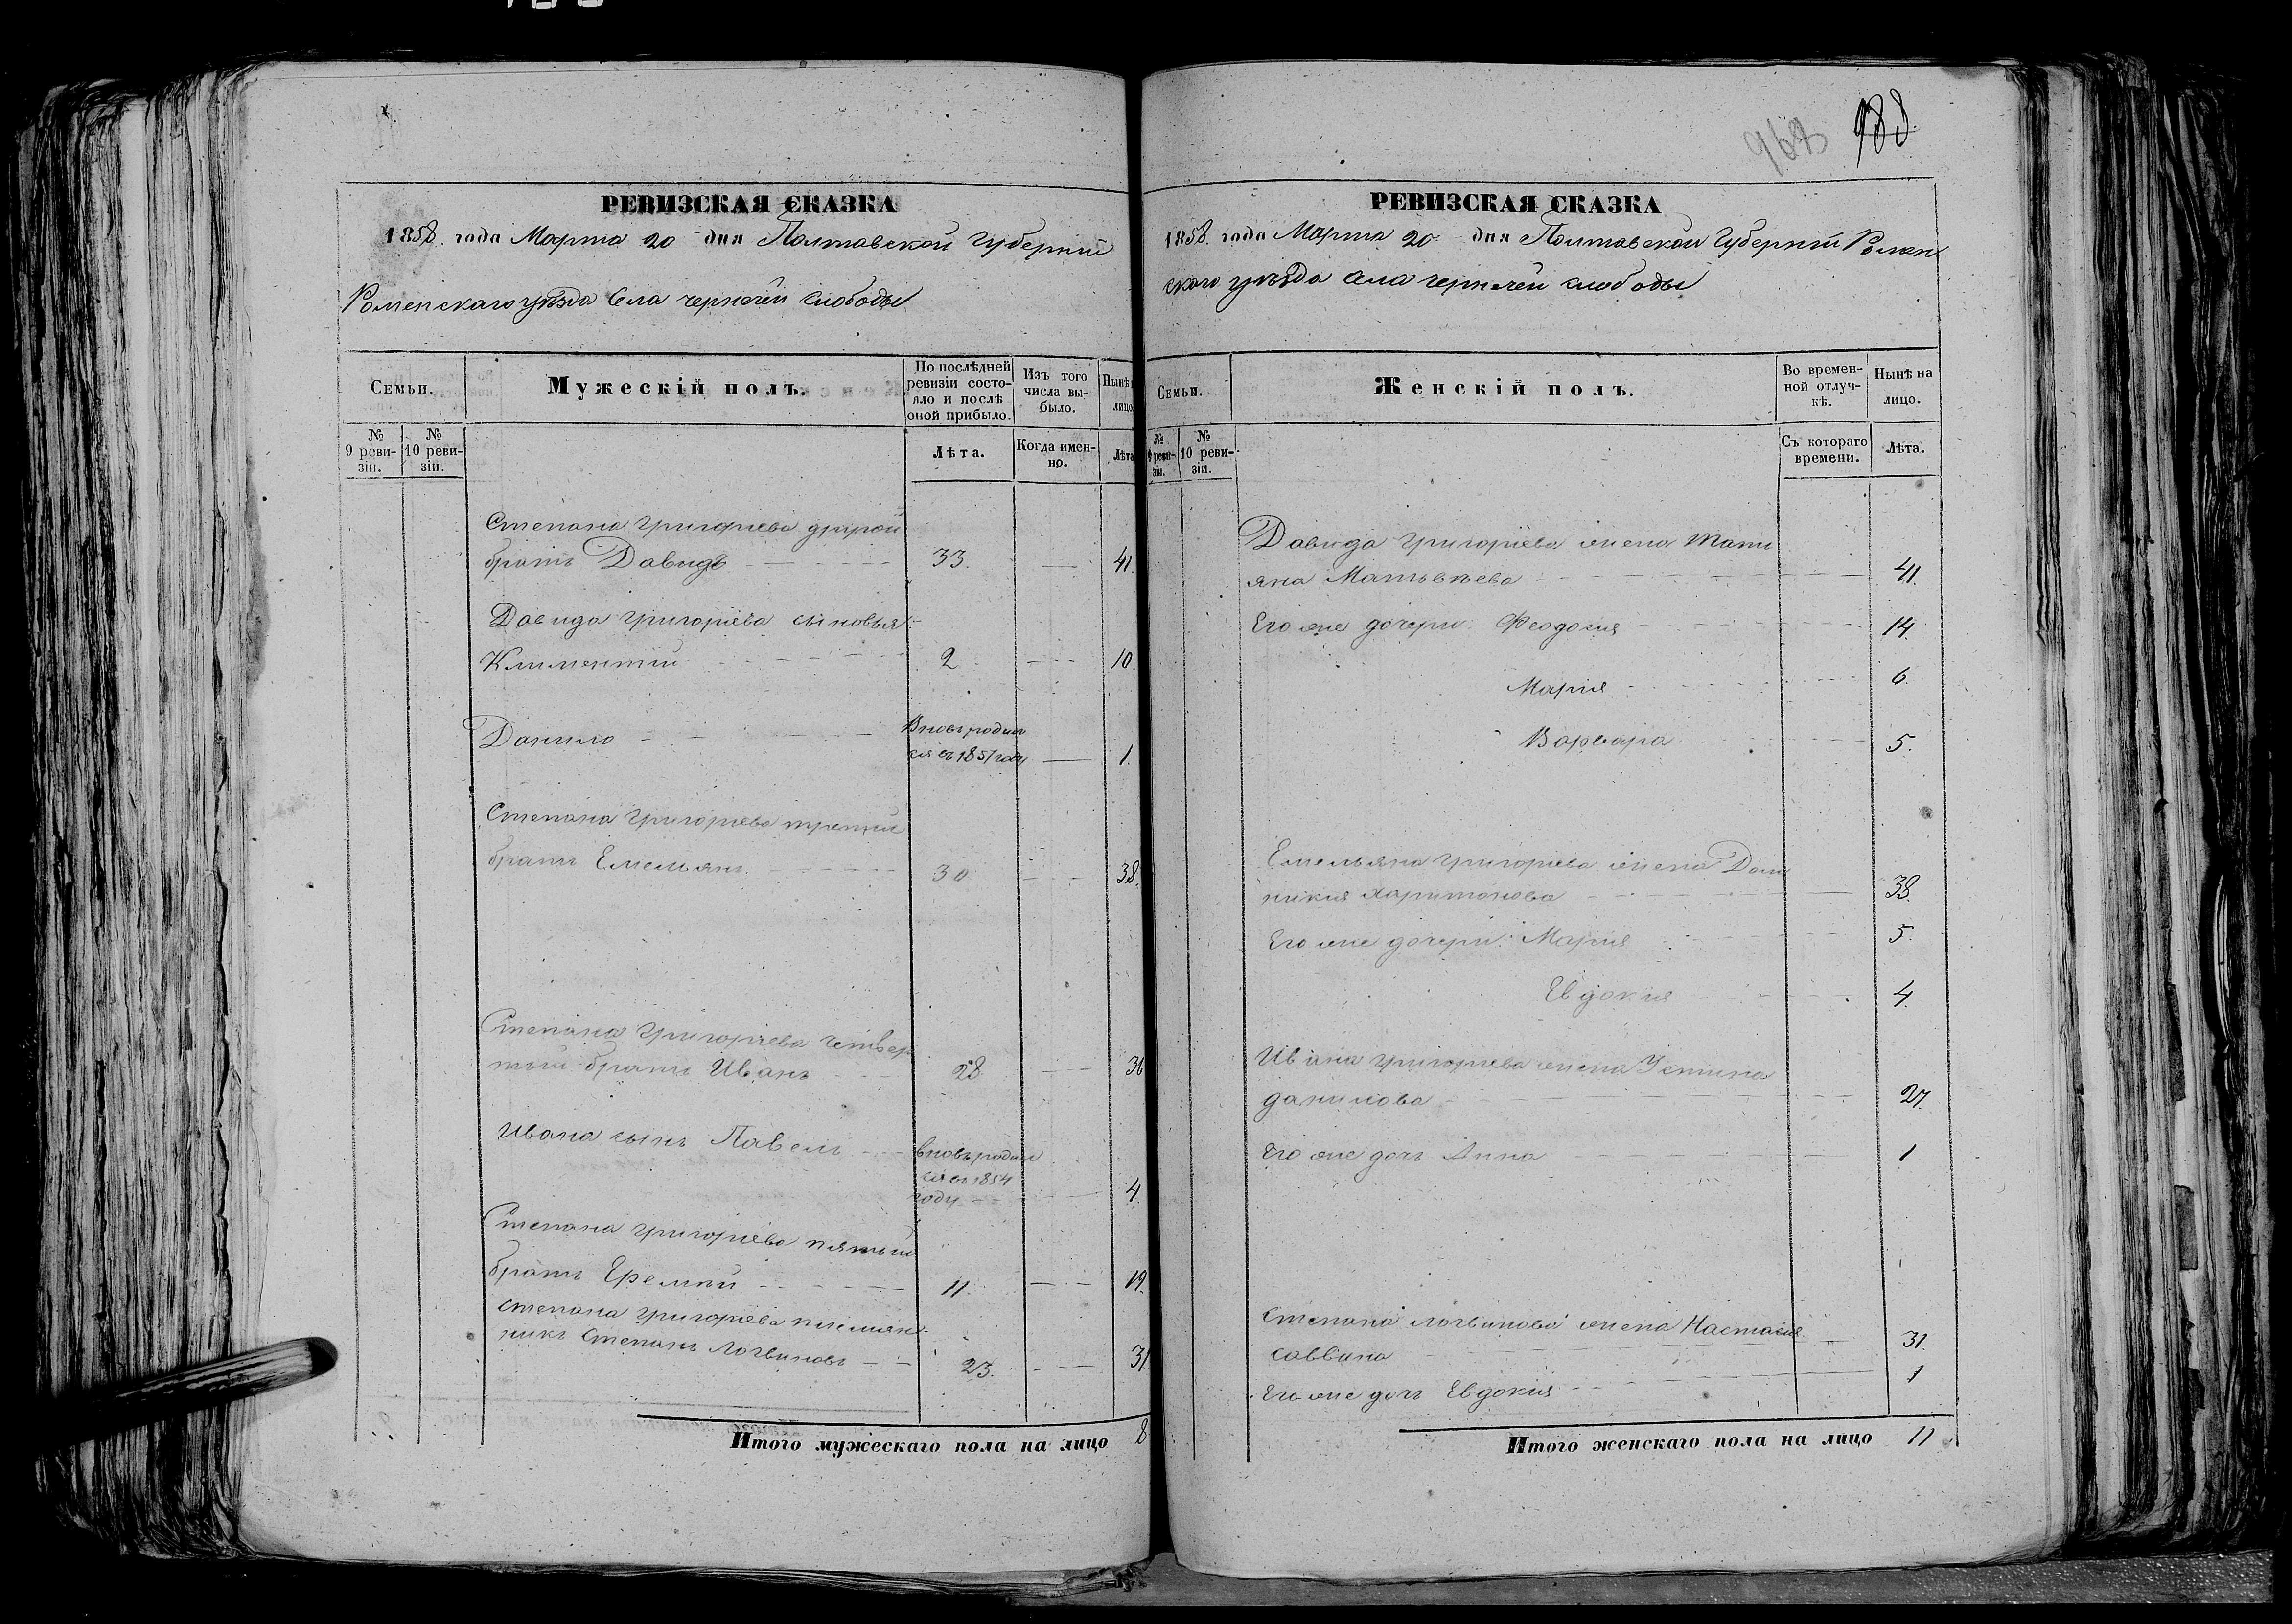 988
РЕВИЗСКАЯ СКАЗКА
1858. года Марта 20 дня Полтавской Губерніи
Роменскаго уѣзда Села чернечей слободы
Семьи.
Мужескій полъ.
По послѣдней ревизіи состояло и послѣ оной прибыло.
Изъ того числа выбыло.
Нынѣ
лицо
№ 9 ревизіи.
№ 10 ревизіи.
Лѣта.
Когда именно.
Лѣта
Степана Григорьева другой
братъ Давидъ 33. 41.
Давида Григорьева сыновья
Климентій 2 10.
Данило
Вновь родил
ся въ 1857 году 1.
Степана Григорьева третій
братъ Емельянъ 30 38.
Степана Григорьева четвер
тый братъ Иванъ 28 36
Ивана сынъ Павелъ вновь родил
ся въ 1854
году 4.
Степана Григорьева пятый
братъ Еремѣй 11. 19.
Степана Григорьева племян
никъ Степанъ Логвиновъ 23. 31
Итого мужескаго пола на лицо 8
РЕВИЗСКАЯ СКАЗКА
1858. года Марта 20 дня Полтавской Губерніи Ромен
скаго уѣзда села чернечей слободы
Семьи.
Женскій полъ.
Во временной отлучкѣ.
Нынѣ на лицо.
№ 9 ревизіи.
№ 10 ревизіи.
Съ котораго времени.
Лѣта.
Давида Григорьева жена Тати
яна Матвѣева 41.
Его же дочери: Феодосия 14.
Мария 6.
Варвара 5.
Емельяна Григорьева жена Доми
никия Харитонова 38.
Его же дочери: Мария 5.
Евдокия 4.
Ивана Григорьева жена Устина
данилова 27.
Его же дочь Анна 1
Степана Логвинова жена Настасия
саввина 31.
Его же дочь Евдокия 1
Итого женскаго пола на лицо 11